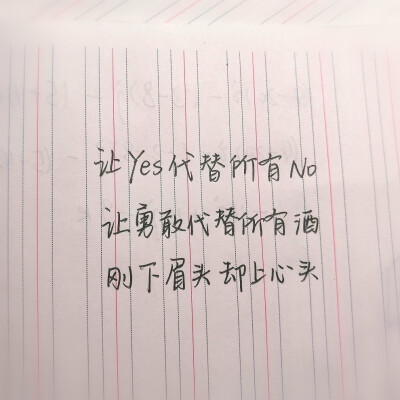 让Yes代替所有No
让勇敢代替所有酒
刚下眉头却上心头